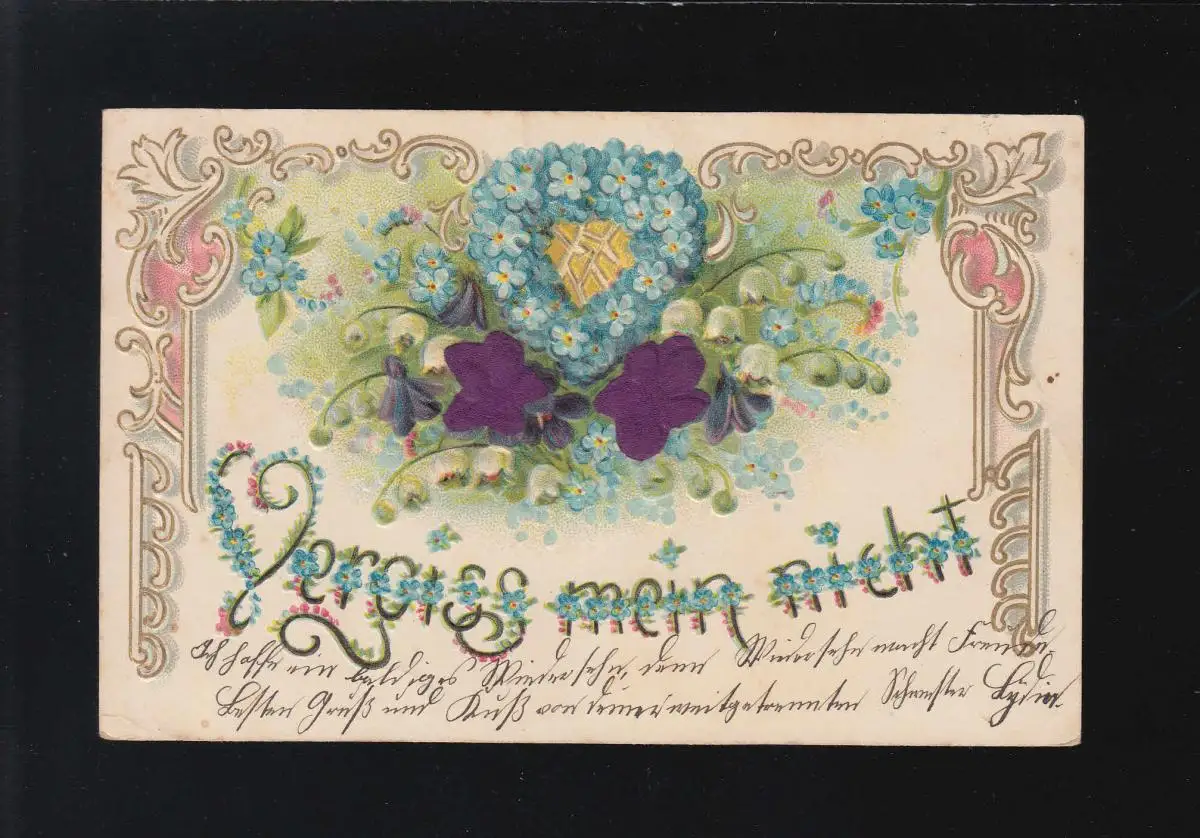 Vergiss mein nicht
Ich hoffe ein baldiges Wiedersehn, denn Wiedersehn macht Freude,
Besten Gruß und Kuß von deiner weitgetrennten Schwester Lydia.